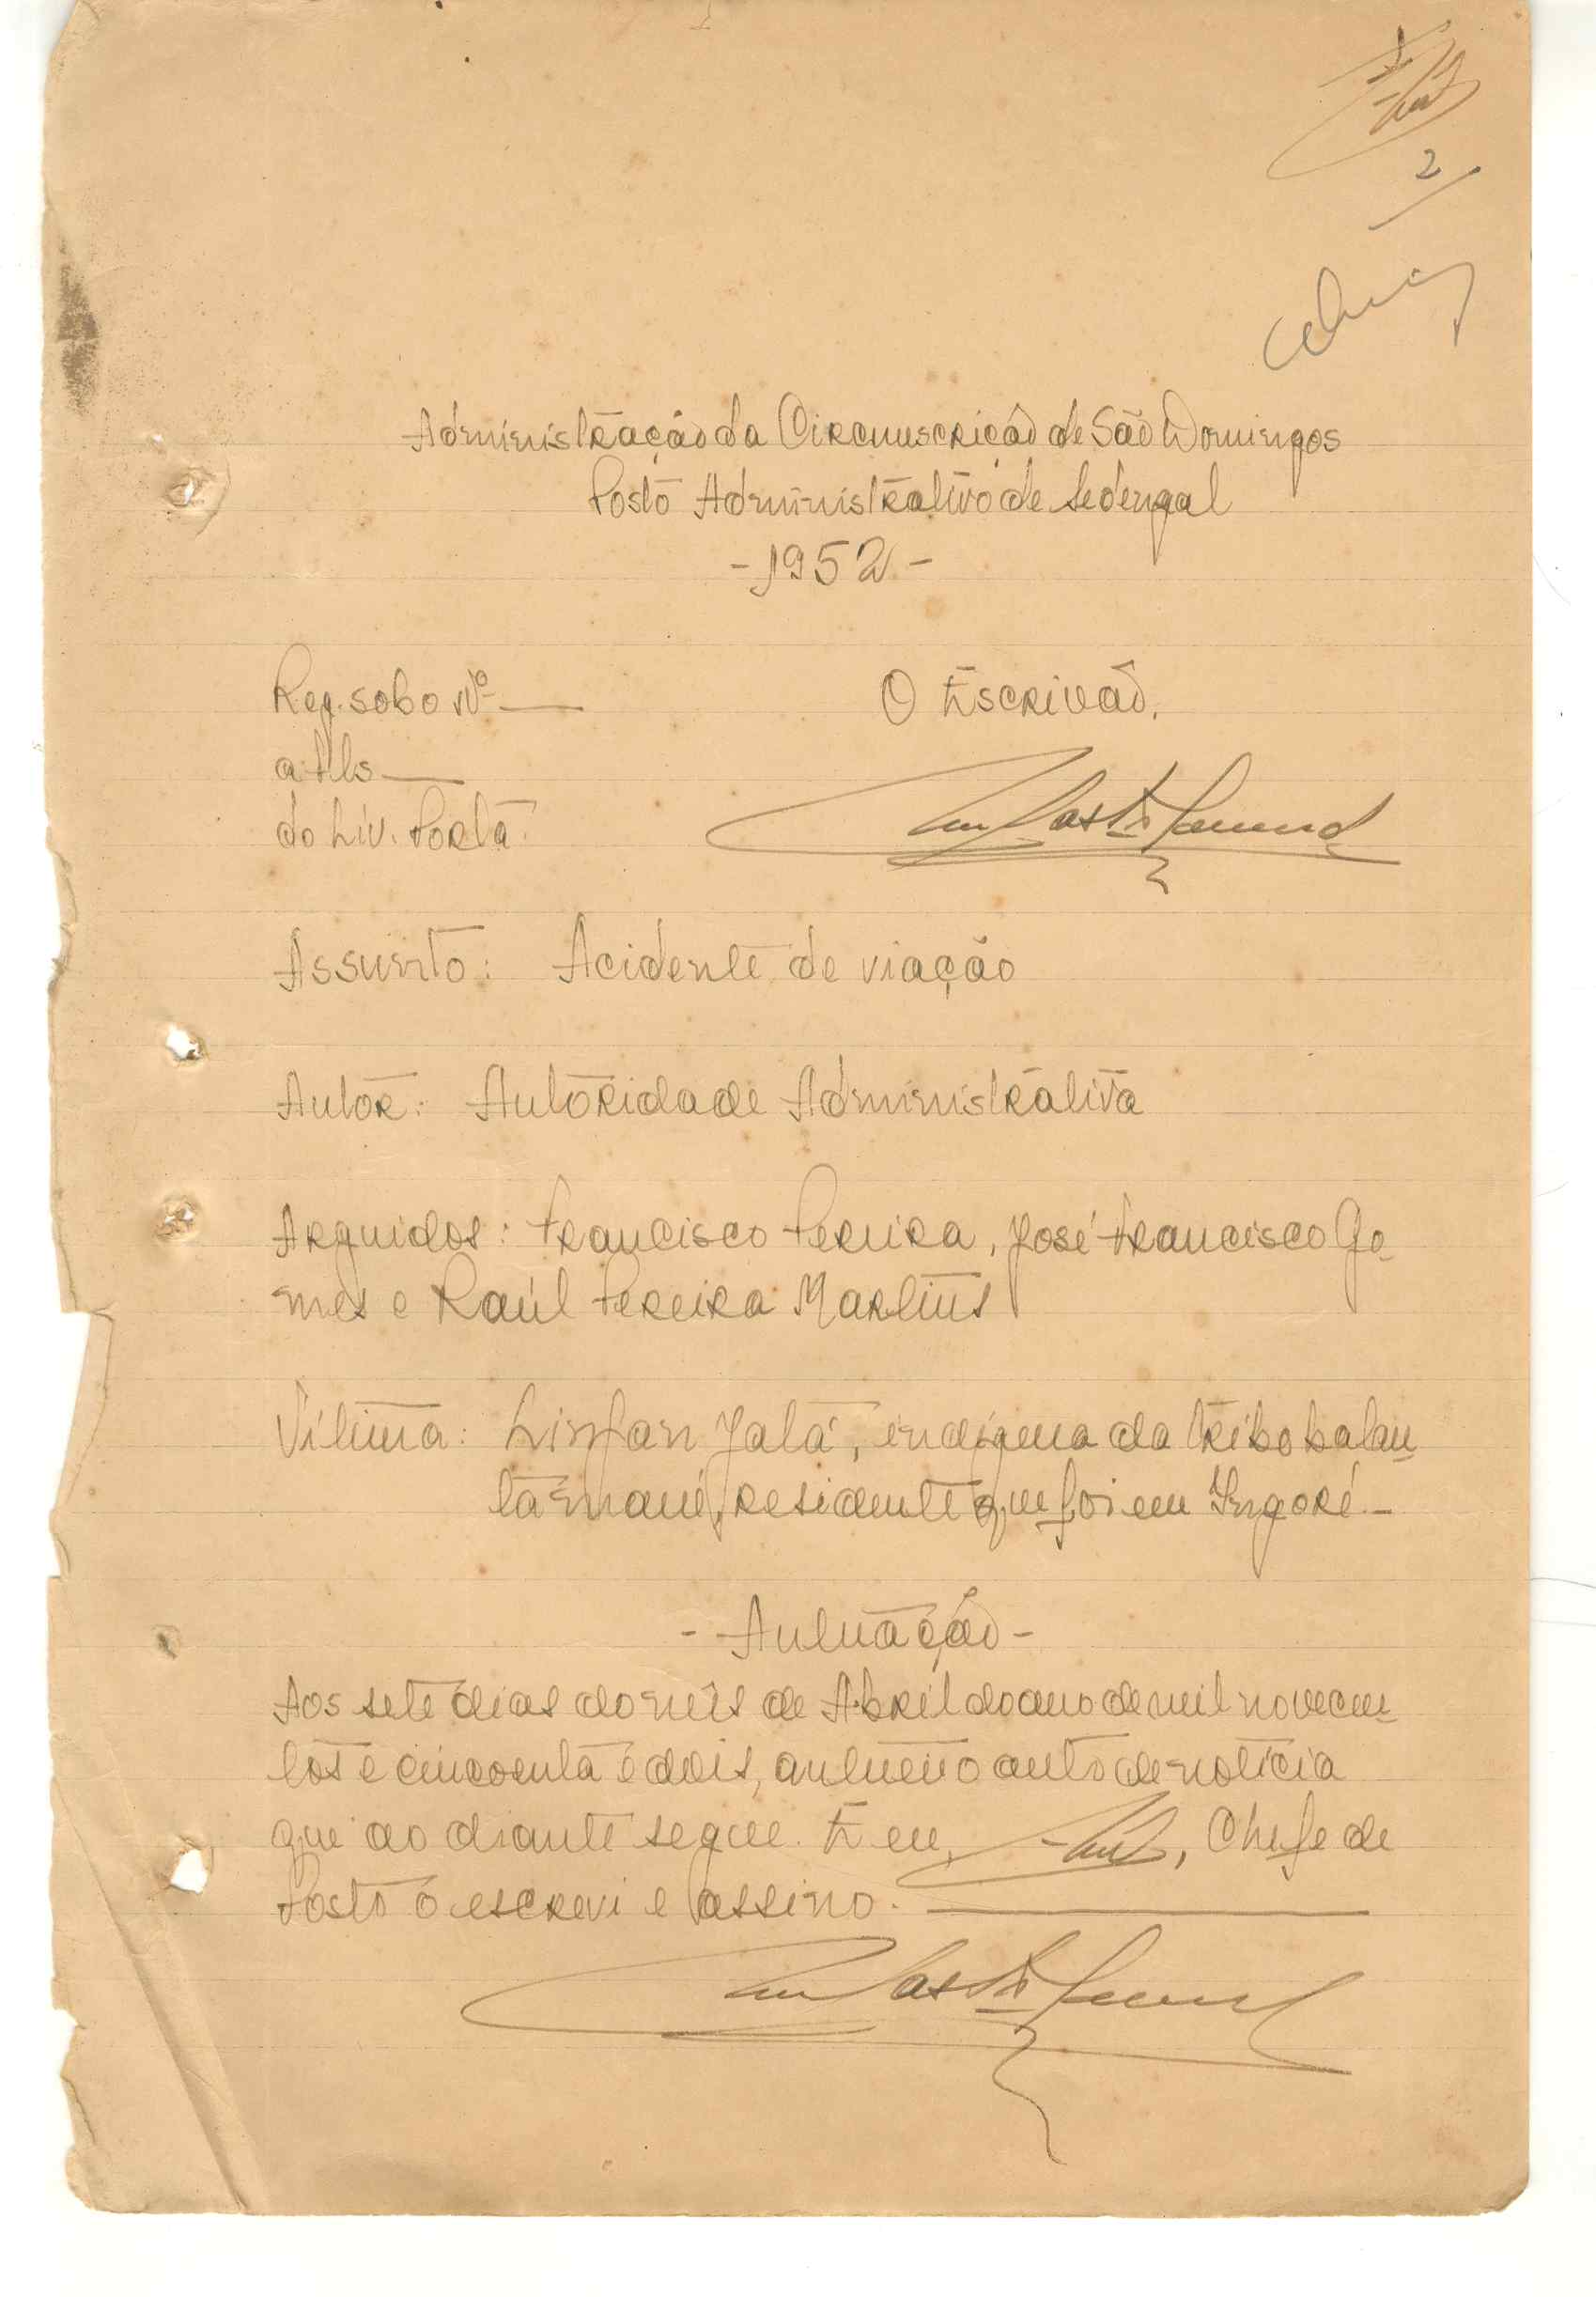 2
Administração da Circunscrição de São Domingos
Posto Administrativo de Sedengal
-1952-
Reg. sob o Nº
O Escrivão,
a fls
do Liv. Porta.
Assunto: Acidente de viação
Autor: Autoridade Administrativa
Arguidos: Francisco Pereira, José Francisco Go-
mes e Raúl Pereira Martins
Vítima: Jalá, indígena da tribo balan-
ta mané, residente que foi em Ingoré-
-Autuação-
Aos sete dias do mês de Abril do ano de mil novecen-
tos e cincoenta e dois, autuei o auto de notícia
que ao diante segue. E eu, , Chefe de
Posto o escrevi e assino.